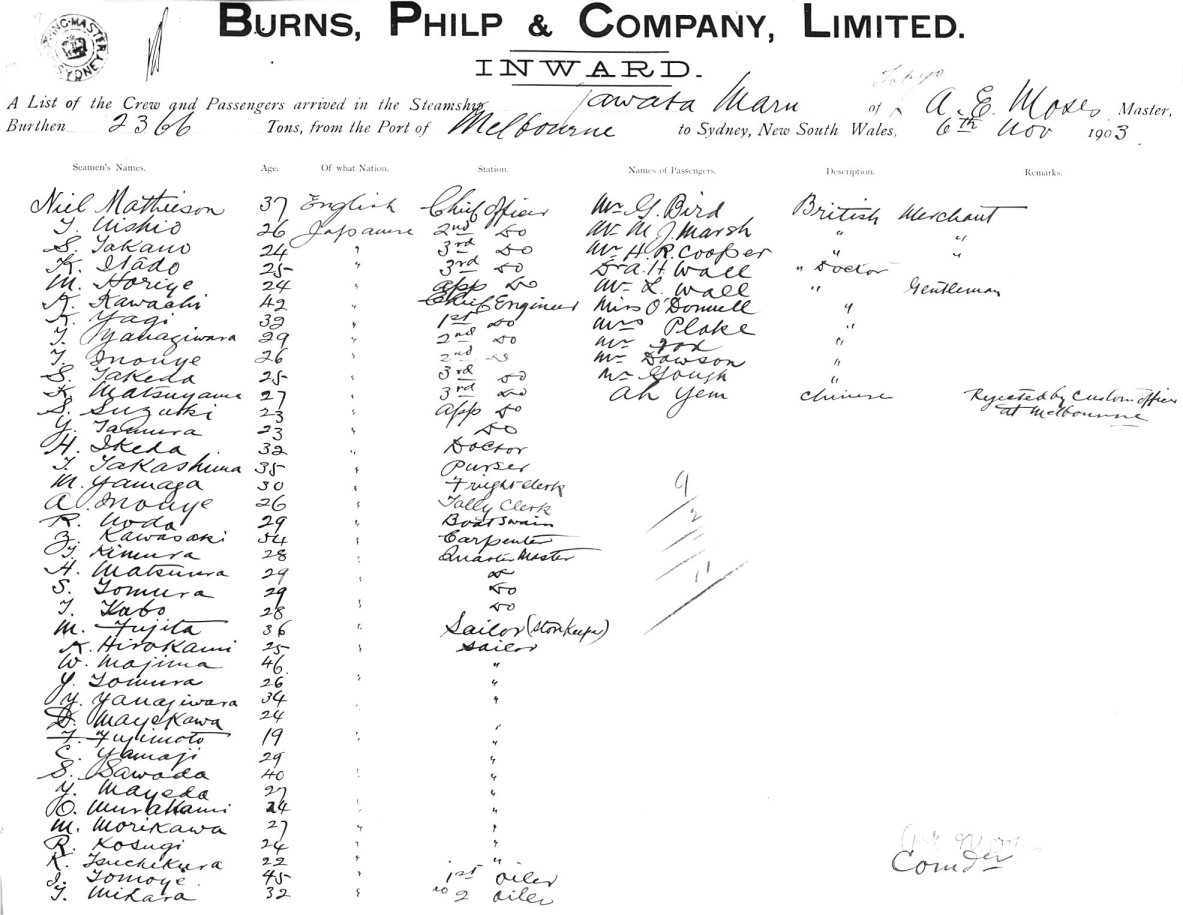 SHIPPING MASTER SYDNEY
BURNS, PHILP & COMPANY, LIMITED.
INWARD.
Tokyo
A List of the Crew and Passengers arrived in the Steamship Yawata Maru of A. E. Moses Master,
Burthen 2366 Tons, from the Port of Melbourne to Sydney, New South Wales, 6th Nov 1903.
Seamen's Names. Age. Of what Nation. Station. Names of Passengers. Description. Remarks.
Niel Mathieson 37 English Chief Officer Mr G. Bird British Merchant
T. Nishio 26 Japanese 2nd Do Mr M J Marsh " "
S. Takano 24 " 3rd Do Mr H. R. Cooper " "
K. Itado 25 " 3rd Do Dr A. H. Wall " Doctor
M. Horiye 24 " App Do Mr L. Wall " Gentleman
K. Kawachi 42 " Chief Engineer Miss O'Donnell "
K. Yagi 32 " 1st Do Mrs Plake "
T. Yanagiwara 29 " 2nd Do Mr Fox "
T. Inouye 26 " 2nd Do Mr Dawson "
S. Takeda 25 " 3rd Do Mr Gough "
K. Matsuyama 27 " 3rd Do Ah Yem Chinese Rejected by Custom Officer
S. Suzuki 23 " App Do at Melbourne
Y. Tamura 23 " Do
H. Ikeda 32 " Doctor
T. Takashima 35 " Purser
M. Yamaga 30 " Freight Clerk 9
A. Inouye 26 " Tally Clerk
R. Noda 29 " Boatswain 2
Z. Kawasaki 34 " Carpenter
T. Kimura 28 " Quarter Master
H. Matsuura 29 " Do 11
S. Tomura 29 " Do
T. Kubo 28 " Do
M. Fujita 36 " Sailor (Store Keeper)
K. Hirokami 25 " Sailor
W. Majima 46 " "
Y. Tomura 26 " "
Y. Yanagiwara 34 " "
D. Mayekawa 24
T. Fujimoto 19 " "
C. Yamaji 29 " "
S. Sawada 40 " "
Y. Mayeda 27 " "
O. Murakami 24 " "
M. Morikawa 27 " "
R. Kosugi 24 " "
K. Tsuchikura 22 " "
I. Tomoye 45 " 1st Oiler
T. Mihara 32 " No 2 Oiler
Comder